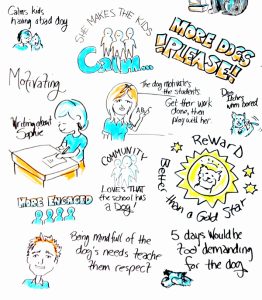 Calms kids
having a bad day
SHE MAKES THE KIDS
Calm...
MORE DOGS
PLEASE!
Motivating
Writing about
Sophie
The dog motivates
the students.
Get their work
done, then
play with her
ABCs
when bored
MORE ENGAGED
COMMUNITY
LOVES THAT
the school has
a Dog!
ReWARD
Better
than a Gold Star
Being mindfull of the
dog's needs teache
them respect
5 days Would be
too demanding
for the dog